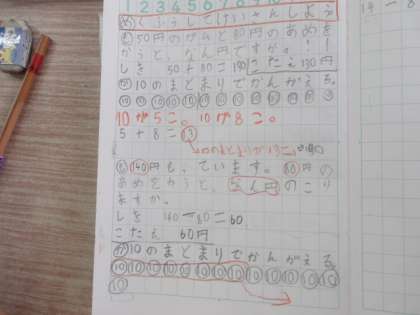 1 2 3 4 5 6 7 8 9 10
め くふうしてけいさんしよう
も 50円のガムと80円のあめを
かうと、なん円ですか。
しき 50+80=130 こたえ130円
か 10のまとまりでかんがえる。
10 10 10 10 10 10 10 10 10 10 10 10 10
10が5こ。10が8こ。
5+8=13
10のまとまりが13こ
も 140円もっています。80円の
あめをかうと、なん円のこり
ますか。
しき 140-80=60
こたえ 60円
か 10のまとまりでかんがえる
10 10 10 10 10 10 10 10 10 10 10 10 10
10